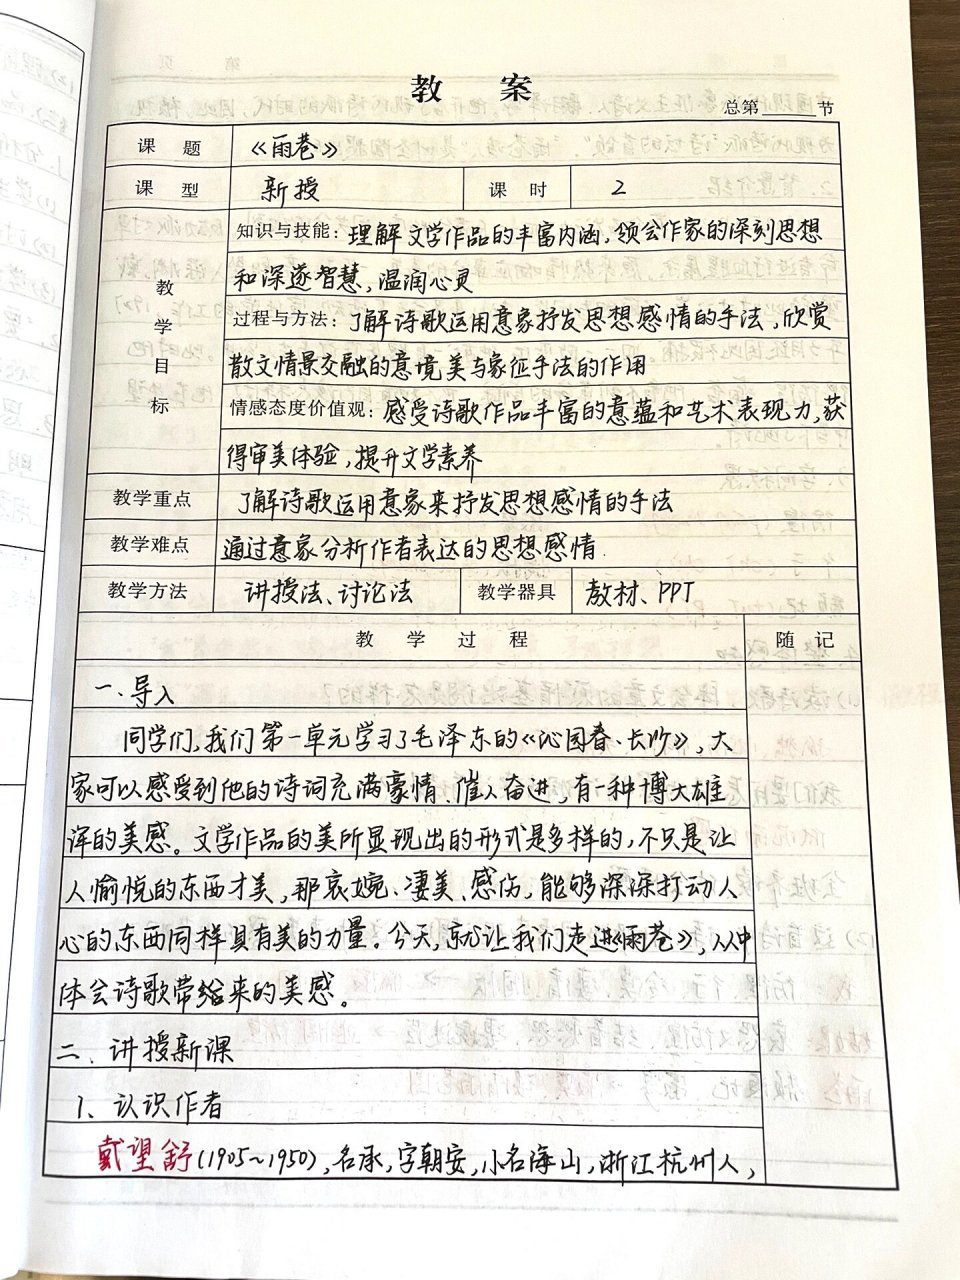 教 案
总第____节
课 题 《雨巷》
课 型 新授 课 时 2
教学目标
知识与技能：理解文学作品的丰富内涵，领会作家的深刻思想
和深邃智慧，温润心灵
过程与方法：了解诗歌运用意象抒发思想感情的手法，欣赏
散文情景交融的意境美与象征手法的作用
情感态度价值观：感受诗歌作品丰富的意蕴和艺术表现力，获
得审美体验，提升文学素养
教学重点 了解诗歌运用意象来抒发思想感情的手法
教学难点 通过意象分析作者表达的思想感情.
教学方法 讲授法、讨论法 教学器具 教材、PPT
教 学 过 程 随 记
一、导入
同学们，我们第一单元学习了毛泽东的《沁园春·长沙》，大
家可以感受到他的诗词充满豪情、催人奋进，有一种博大雄
浑的美感。文学作品的美所显现出的形式是多样的，不只是让
人愉悦的东西才美，那哀婉、凄美、感伤，能够深深打动人
心的东西同样具有美的力量。今天，就让我们走进《雨巷》，从中
体会诗歌带给来的美感。
二、讲授新课
1、认识作者
戴望舒(1905~1950)，名承，字朝安，小名海山，浙江杭州人，